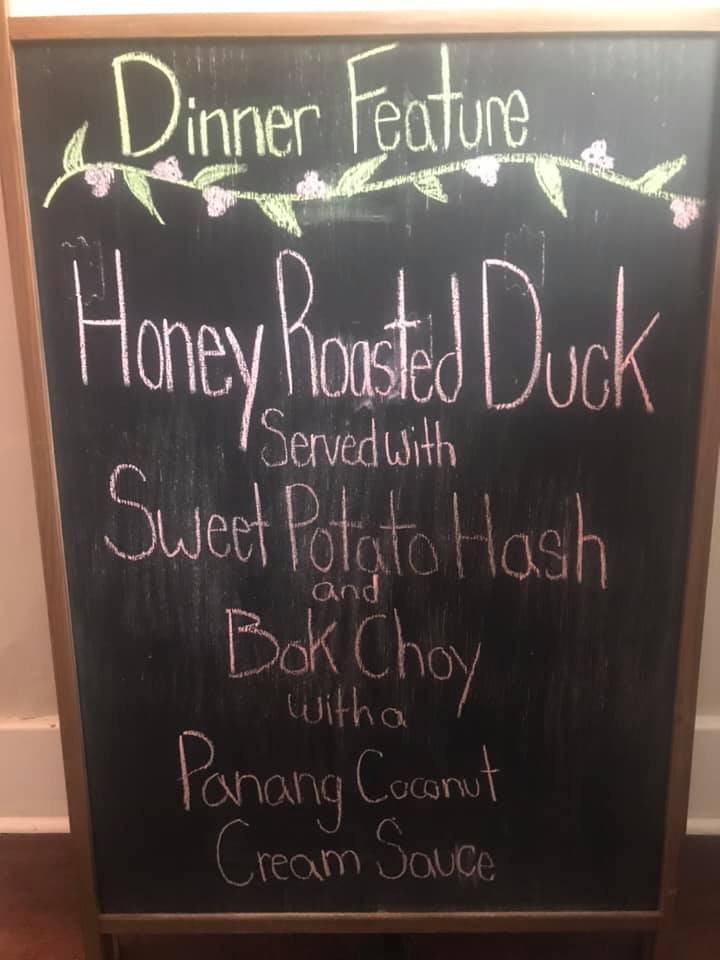 Dinner Feature
Honey Roasted Duck
Served with
Sweet Potato Hash
and
Bok Choy
with a
Panang Coconut
Cream Sauce